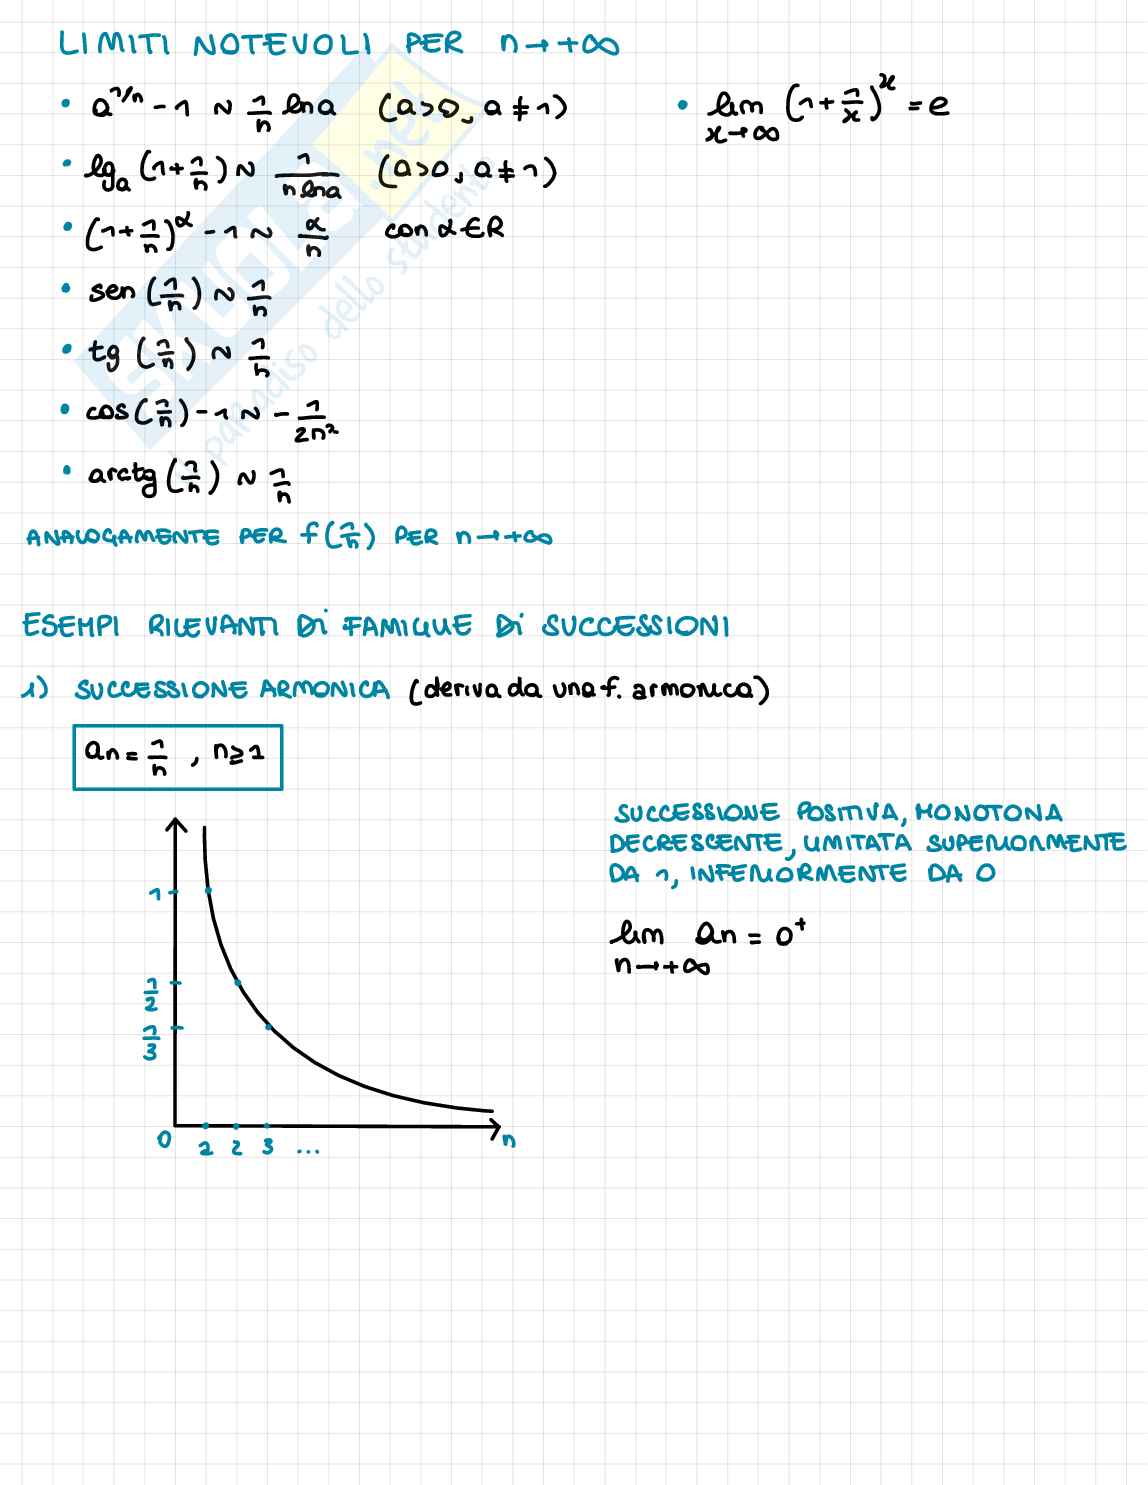 LIMITI NOTEVOLI PER n→+∞
• a^(1/n) - 1 ~ 1/n ln a (a>0, a≠1)
• lg_a (1+1/n) ~ 1/(n ln a) (a>0, a≠1)
• (1+1/n)^α - 1 ~ α/n con α∈R
• sen(1/n) ~ 1/n
• tg(1/n) ~ 1/n
• cos(1/n) - 1 ~ - 1/(2n²)
• arctg(1/n) ~ 1/n
• lim x→∞ (1+1/x)^x = e
ANALOGAMENTE PER f(1/n) PER n→+∞
ESEMPI RILEVANTI Di FAMIGLIE Di SUCCESSIONI
1) SUCCESSIONE ARMONICA (deriva da una f. armonica)
an = 1/n , n≥1
SUCCESSIONE POSITIVA, MONOTONA
DECRESCENTE, LIMITATA SUPERIORMENTE
DA 1, INFERIORMENTE DA 0
lim an = 0⁺
n→+∞
1
1/2
1/3
0 1 2 3 ... n
SKUOLA.net
il paradiso dello studente